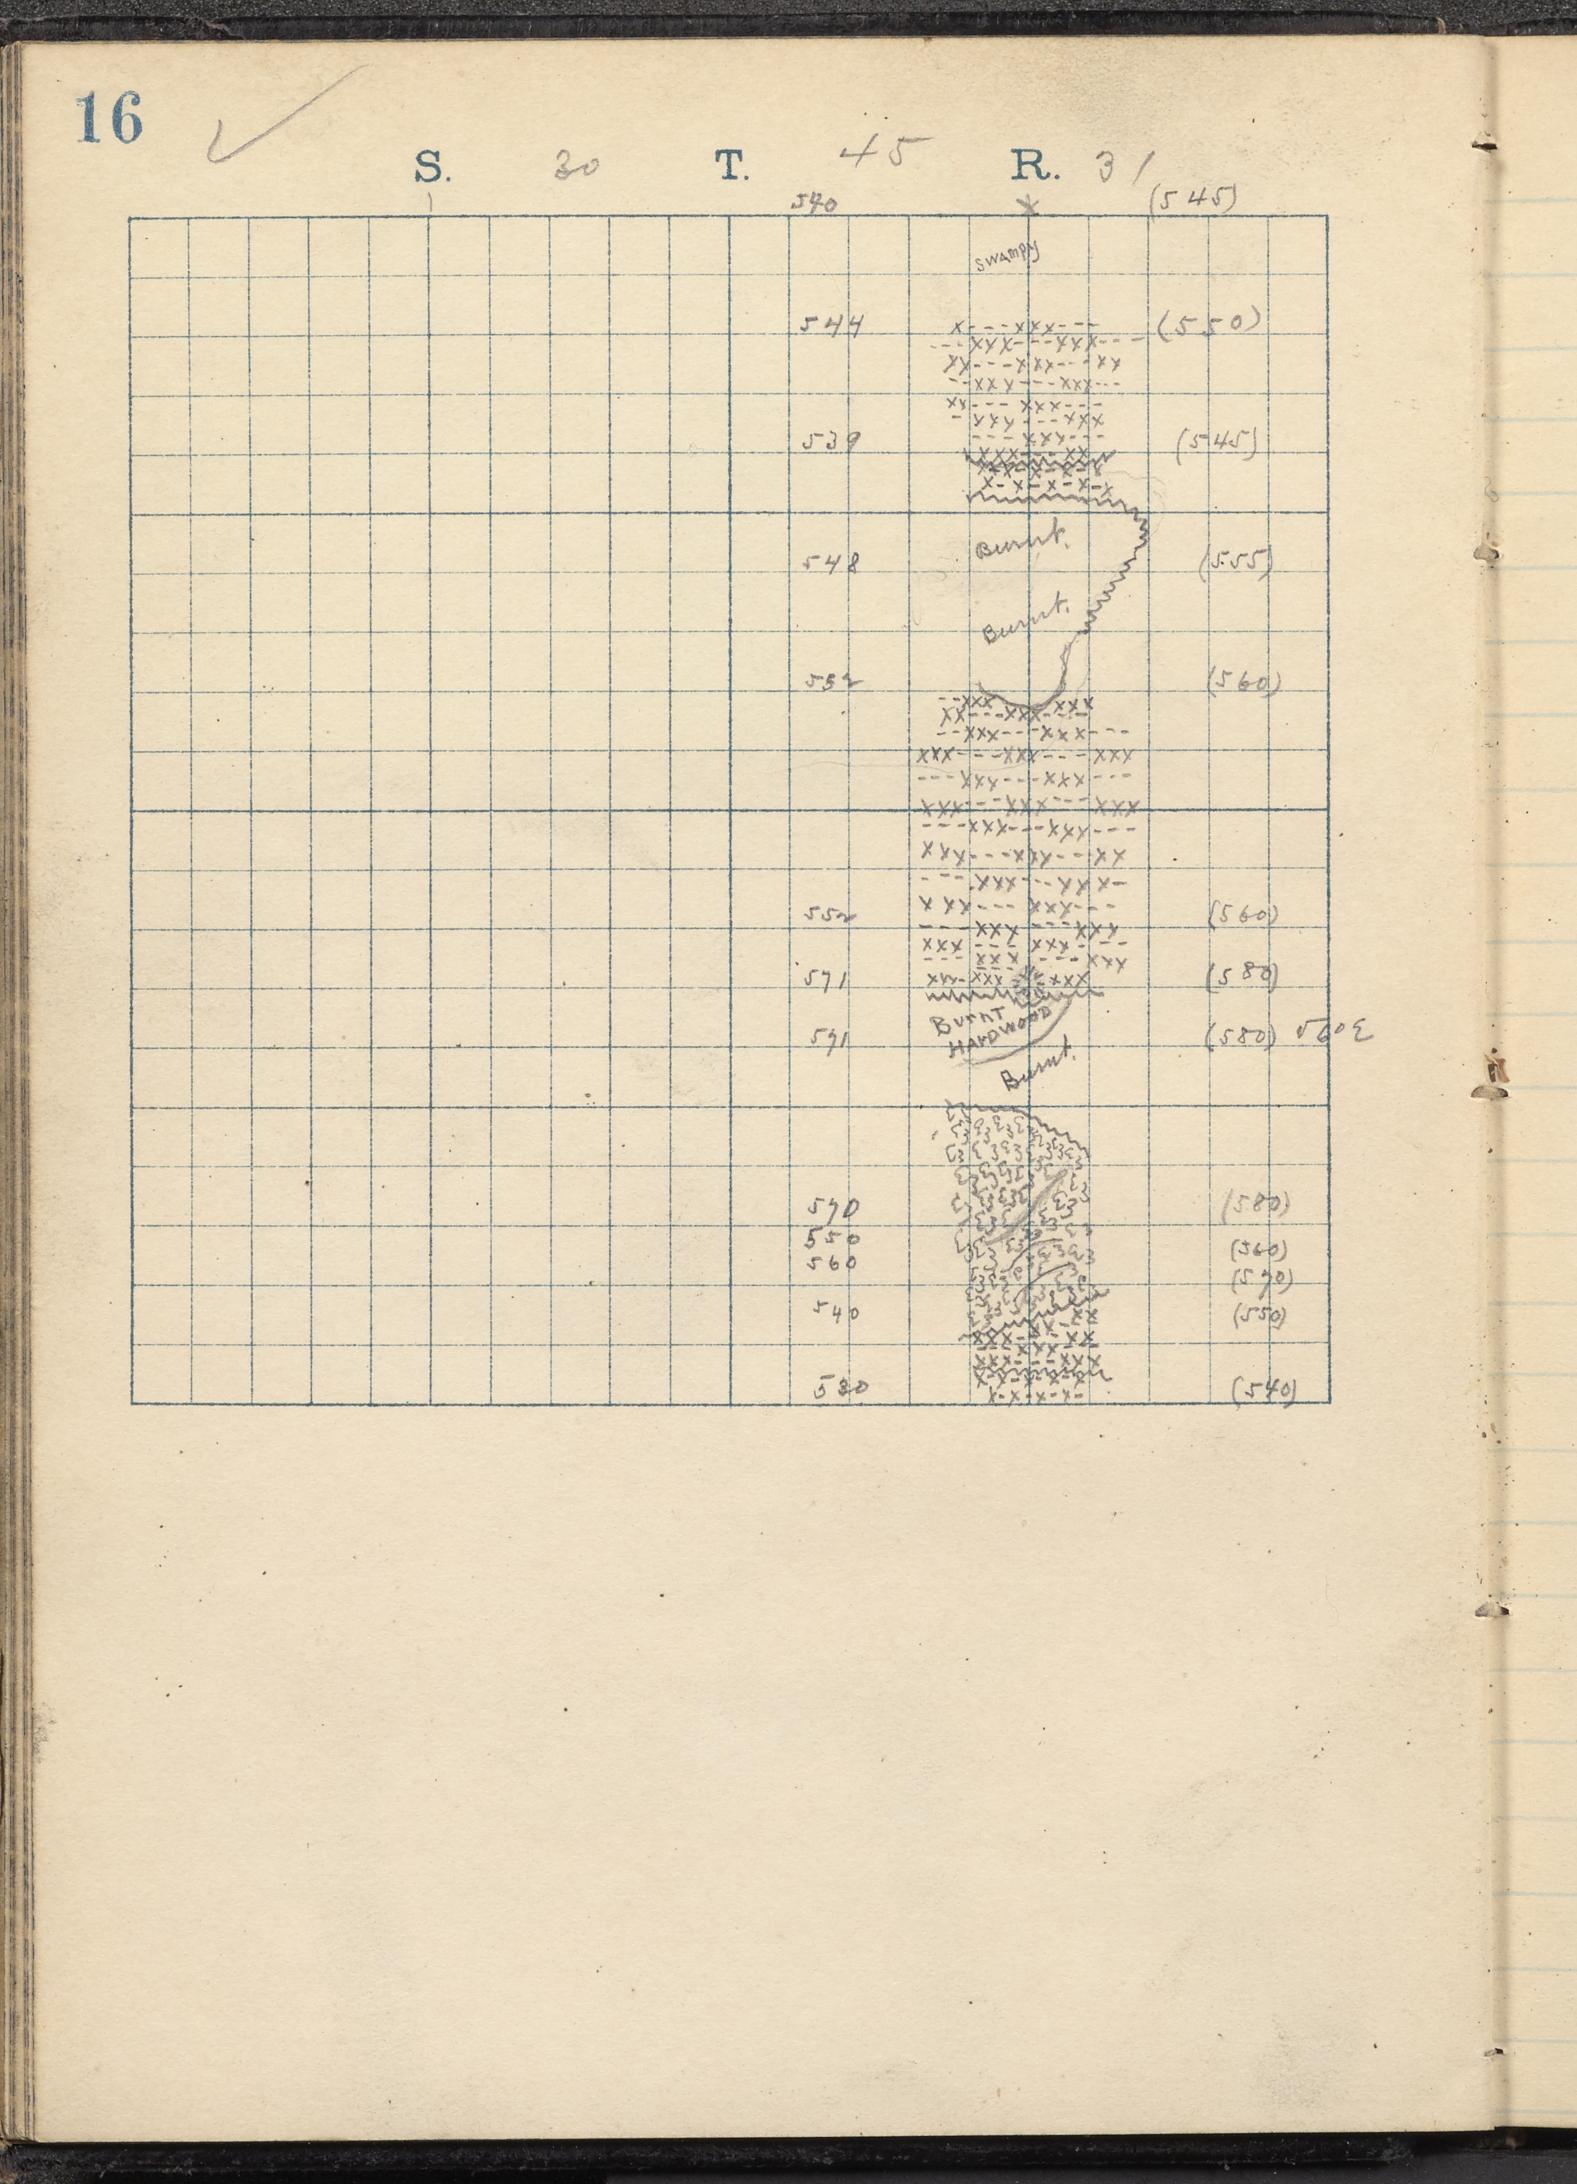 16
S. 30 T. 45 R. 31
540 (545)
Swampy
544 (550)
539 (545)
Burnt.
548 (555)
Burnt.
552 (560)
552 (560)
571 (580)
Burnt
Hardwood
571 (580)
Burnt.
570 (580)
550 (560)
560 (570)
540 (550)
530 (540)